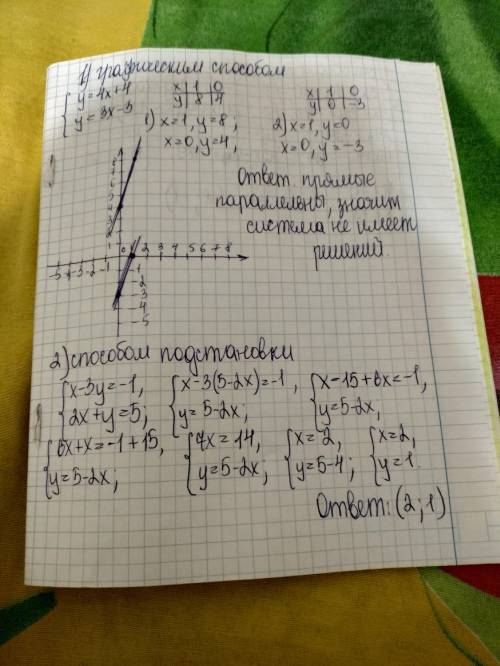 1) графическим способом
{y=4x+4
y=3x-3
x | 1 | 0
y | 8 | 4
x | 1 | 0
y | 0 | -3
1) x=1, y=8;
x=0, y=4,
2) x=1, y=0
x=0, y=-3
Ответ. прямые
параллельны, значит
система не имеет
решений.
-5 -4 -3 -2 -1 0 2 3 4 5 6 7 8
-1
-2
-3
-4
-5
2) способом подстановки
{x-3y=-1,
2x+y=5;
{x-3(5-2x)=-1,
y=5-2x;
{x-15+6x=-1,
y=5-2x,
{6x+x=-1+15,
y=5-2x;
{7x=14,
y=5-2x;
{x=2,
y=5-4;
{x=2,
y=1.
Ответ: (2;1)